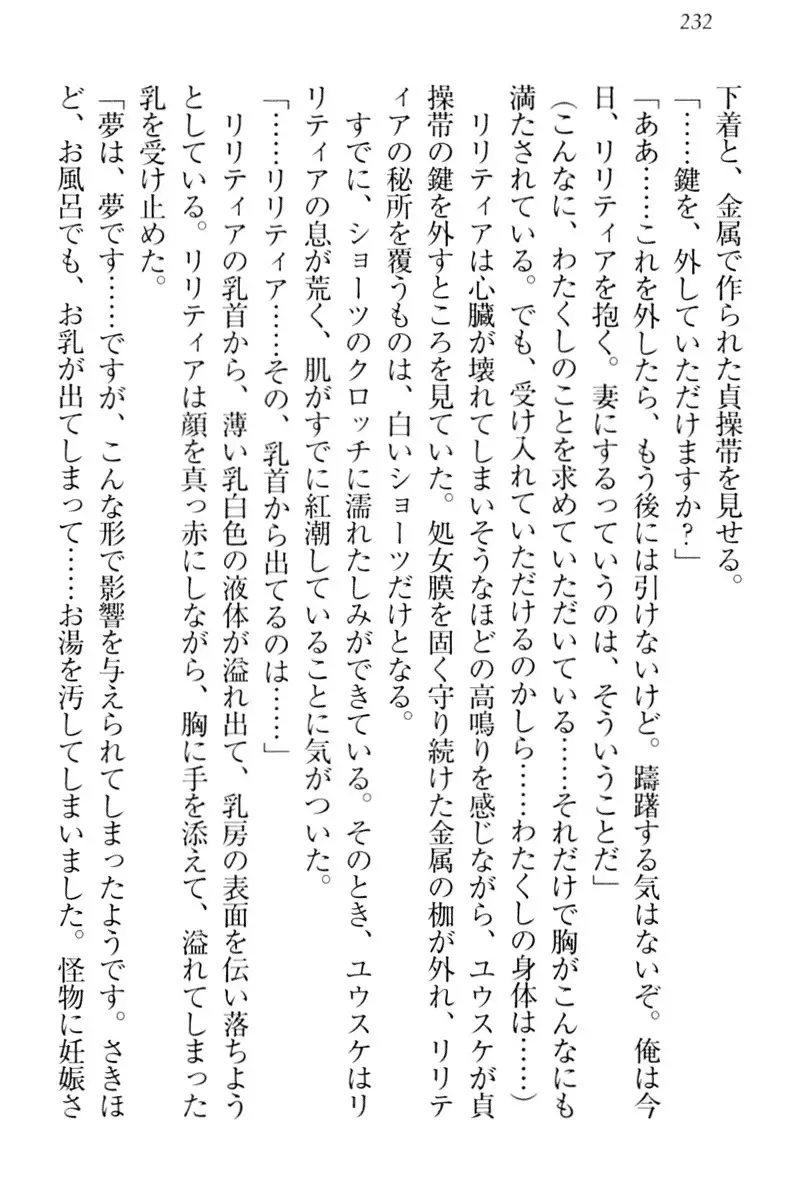 232
下着と、金属で作られた貞操帯を見せる。
「……鍵を、外していただけますか？」
「ああ……これを外したら、もう後には引けないけど。躊躇する気はないぞ。俺は今
日、リリティアを抱く。妻にするっていうのは、そういうことだ」
（こんなに、わたくしのことを求めていただいている……それだけで胸がこんなにも
満たされている。でも、受け入れていただけるのかしら……わたくしの身体は……）
リリティアは心臓が壊れてしまいそうなほどの高鳴りを感じながら、ユウスケが貞
操帯の鍵を外すところを見ていた。処女膜を固く守り続けた金属の枷が外れ、リリテ
ィアの秘所を覆うものは、白いショーツだけとなる。
すでに、ショーツのクロッチに濡れたしみができている。そのとき、ユウスケはリ
リティアの息が荒く、肌がすでに紅潮していることに気がついた。
「……リリティア……その、乳首から出てるのは……」
リリティアの乳首から、薄い乳白色の液体が溢れ出て、乳房の表面を伝い落ちよう
としている。リリティアは顔を真っ赤にしながら、胸に手を添えて、溢れてしまった
乳を受け止めた。
「夢は、夢です……ですが、こんな形で影響を与えられてしまったようです。さきほ
ど、お風呂でも、お乳が出てしまって……お湯を汚してしまいました。怪物に妊娠さ